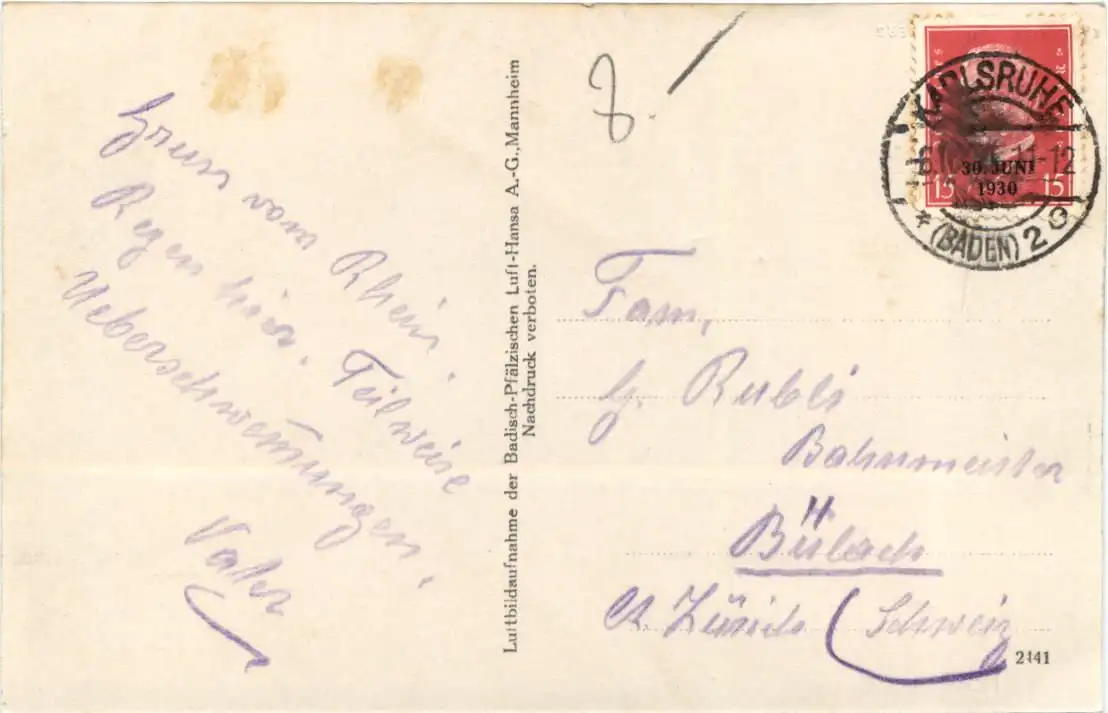 Gruss vom Rhein.
Regen hier. Teilweise
Ueberschwemmungen.
Vater
Luftbildaufnahme der Badisch-Pfälzischen Luft-Hansa A.-G., Mannheim
Nachdruck verboten.
8.
KARLSRUHE
11-12
(BADEN) 2
30. JUNI
1930
15 15
Fam.
G. Rubli
Bahnmeister
Bülach
Ct. Zürich (Schweiz
2441